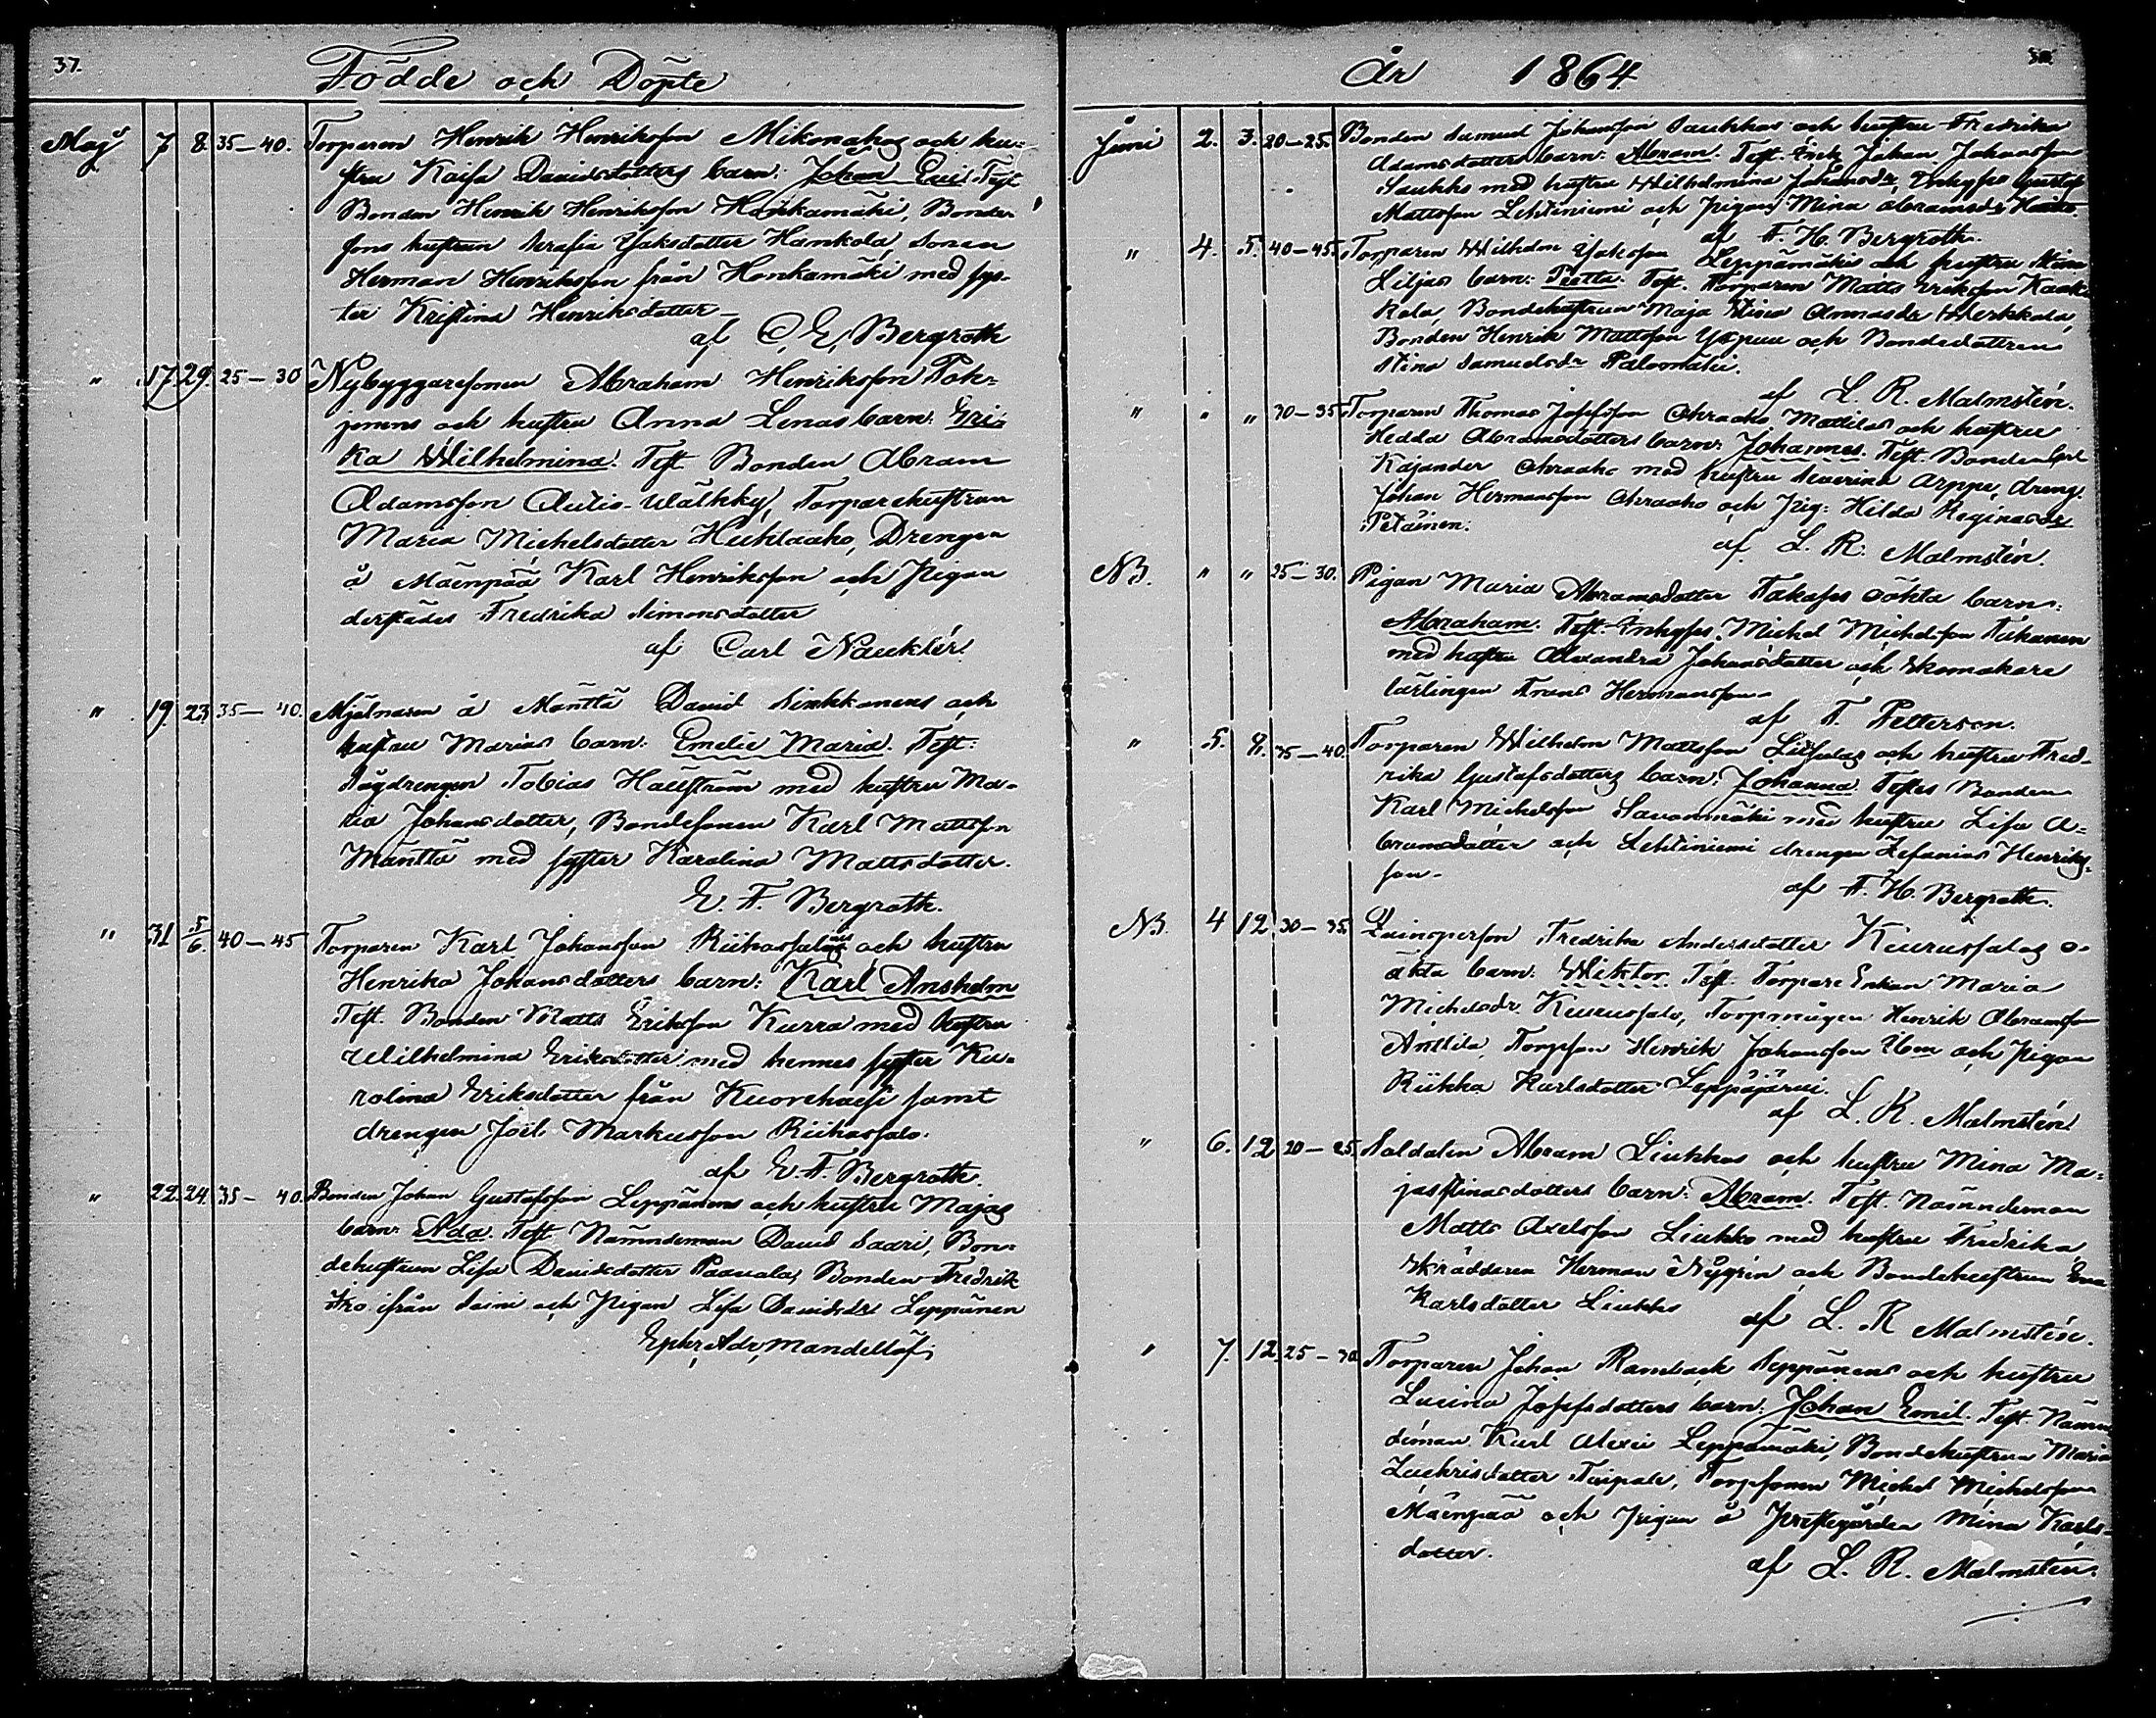 37.
Födde och Döpte
Maj 7 8. 35-40. Torparen Henrik Henriksson Mikonahos och hu-
stru Kaisa Davidsdotters barn: Johan Test
Bonden Henrik Henriksson Honkamäki, Bonde-
sons hustrun Serafia Jaksdotter Hankola, Sonen
Herman Henriksson från Honkamäki med sys-
ter Kristina Henriksdotter
af C. E. Bergroth
" 17 29. 25-30 Nybyggaresonen Abraham Henriksson Poh-
jonens och hustru Anna Lenas barn: Eri-
ka Wilhelmina. Test. Bonden Abram
Adamsson Autio-Wälkky, Torparehustrun
Maria Michelsdotter Huhtaaho, Drengen
å Mäenpää Karl Henriksson och Pigan
derstädes Fredrika Simonsdotter
af Carl Nauklér
" 19. 23. 35-40. Mjölnaren å Mänttä David Sinkkonens och
hustru Marias barn: Emelie Maria. Test:
Sågdrengen Tobias Hällström med hustru Ma-
ria Johansdotter, Bondesonen Karl Mattsson
Mänttä med syster Karolina Mattsdotter.
E. F. Bergroth.
" 31 5/6. 40-45 Torparen Karl Johansson Riihossalos och hustru
Henrika Johansdotters barn: Karl Anshelm
Test. Bonden Matts Eriksson Kurra med hustru
Wilhelmina Eriksdotter med hennes syster Ka-
rolina Eriksdotter från Kuorehasi samt
drengen Joel Markusson Riihossalo.
af E. F. Bergroth.
" 22. 24. 35-40. Bonden Johan Gustafsson Leppänens och hustru Majas
barn: Ada. Test. Nämndeman David Saari, Bon-
dehustrun Lisa Davidsdotter Paavola, Bonden Fredrik
ifrån Soini och Pigan Lisa Davidsdr Leppänen
Ephr. Adr. Mandellöf.
År 1864
Juni 2. 3. 20-25. Bonden Samuel Johansson Saukkos och hustru Fredrika
Adamsdotters barn: Abram. Test. Johan Johansson
Saukko med hustru Wilhelmina Johansdr, Inhyses Gustaf
Mattsson Lehtiniemi och Pigan Mina Abramsdr
af F. H. Bergroth.
" 4. 5. 40-45. Torparen Wilhelm Jaksson Leppämäkis och hustru Stina
Liljas barn: Test. Torparen Matts Eriksson Kaak-
kola, Bondehustrun Maja Stina Annasdr Werkkala,
Bonden Henrik Mattsson och Bondedottren
Stina Samuelsdr Palomäki.
af L. R. Malmstén.
" " " 30-35. Torparen Thomas Josefsson Ahraaho Mattilas och hustru
Hedda Abramsdotters barn: Johannes. Test. Bonden Carl
Kajander Ahraaho med hustru Severina Arppe, dreng.
Johan Hermansson Ahraaho och Pig. Hilda Reginasdr
Petäinen.
af L. R. Malmstén.
NB. " " 25-30. Pigan Maria Abramsdotter Takases oäkta barn:
Abraham. Test. Inhyses Michel Michelsson Tiihonen
med hustru Alexandra Johansdotter och Skomakare
lärlingen Frans Hermansson
af F. Petterson.
" 5. 8. 35-40. Torparen Wilhelm Mattsson och hustru Fred-
rika Gustafsdotters barn: Johanna. Testes Bonden
Karl Michelsson Savonmäki med hustru Lisa A-
bramsdotter och Lehtiniemi drengen Zefanias Henriks-
son.
af F. H. Bergroth.
NB. 4 12 30-35 Qvinsperson Fredrika Andersdotter Kiurusalos o-
äkta barn: Wiktor. Test. Torpare Enkan Maria
Michelsdr. Kiurusalo, Torpmågen Henrik Abramsson
Anttila, Torpson Henrik Johansson och Pigan
Riikka Karlsdotter Leppäjärvi.
af L. R. Malmstén
" 6. 12 20-25. Soldaten Abram Liukkos och hustru Mina Ma-
jastinasdotters barn: Abram. Test. Nämndeman
Matts Axelsson Liukko med hustru Fredrika,
Skräddaren Herman Nygrén och Bondehustrun Eva
Karlsdotter Liukko
af L. R. Malmstén.
" 7. 12. 25-30. Torparen Johan Ramback Seppänens och hustru
Lucina Josefsdotters barn: Johan Emil. Test. Nämn-
deman Karl Alexii Leppämäki, Bondehustrun Maria
Zachrisdotter Taipale, Torpsonen Michel Michelsson
Mäenpää och Pigan å Prestegården Mina Karls-
dotter.
af L. R. Malmstén.